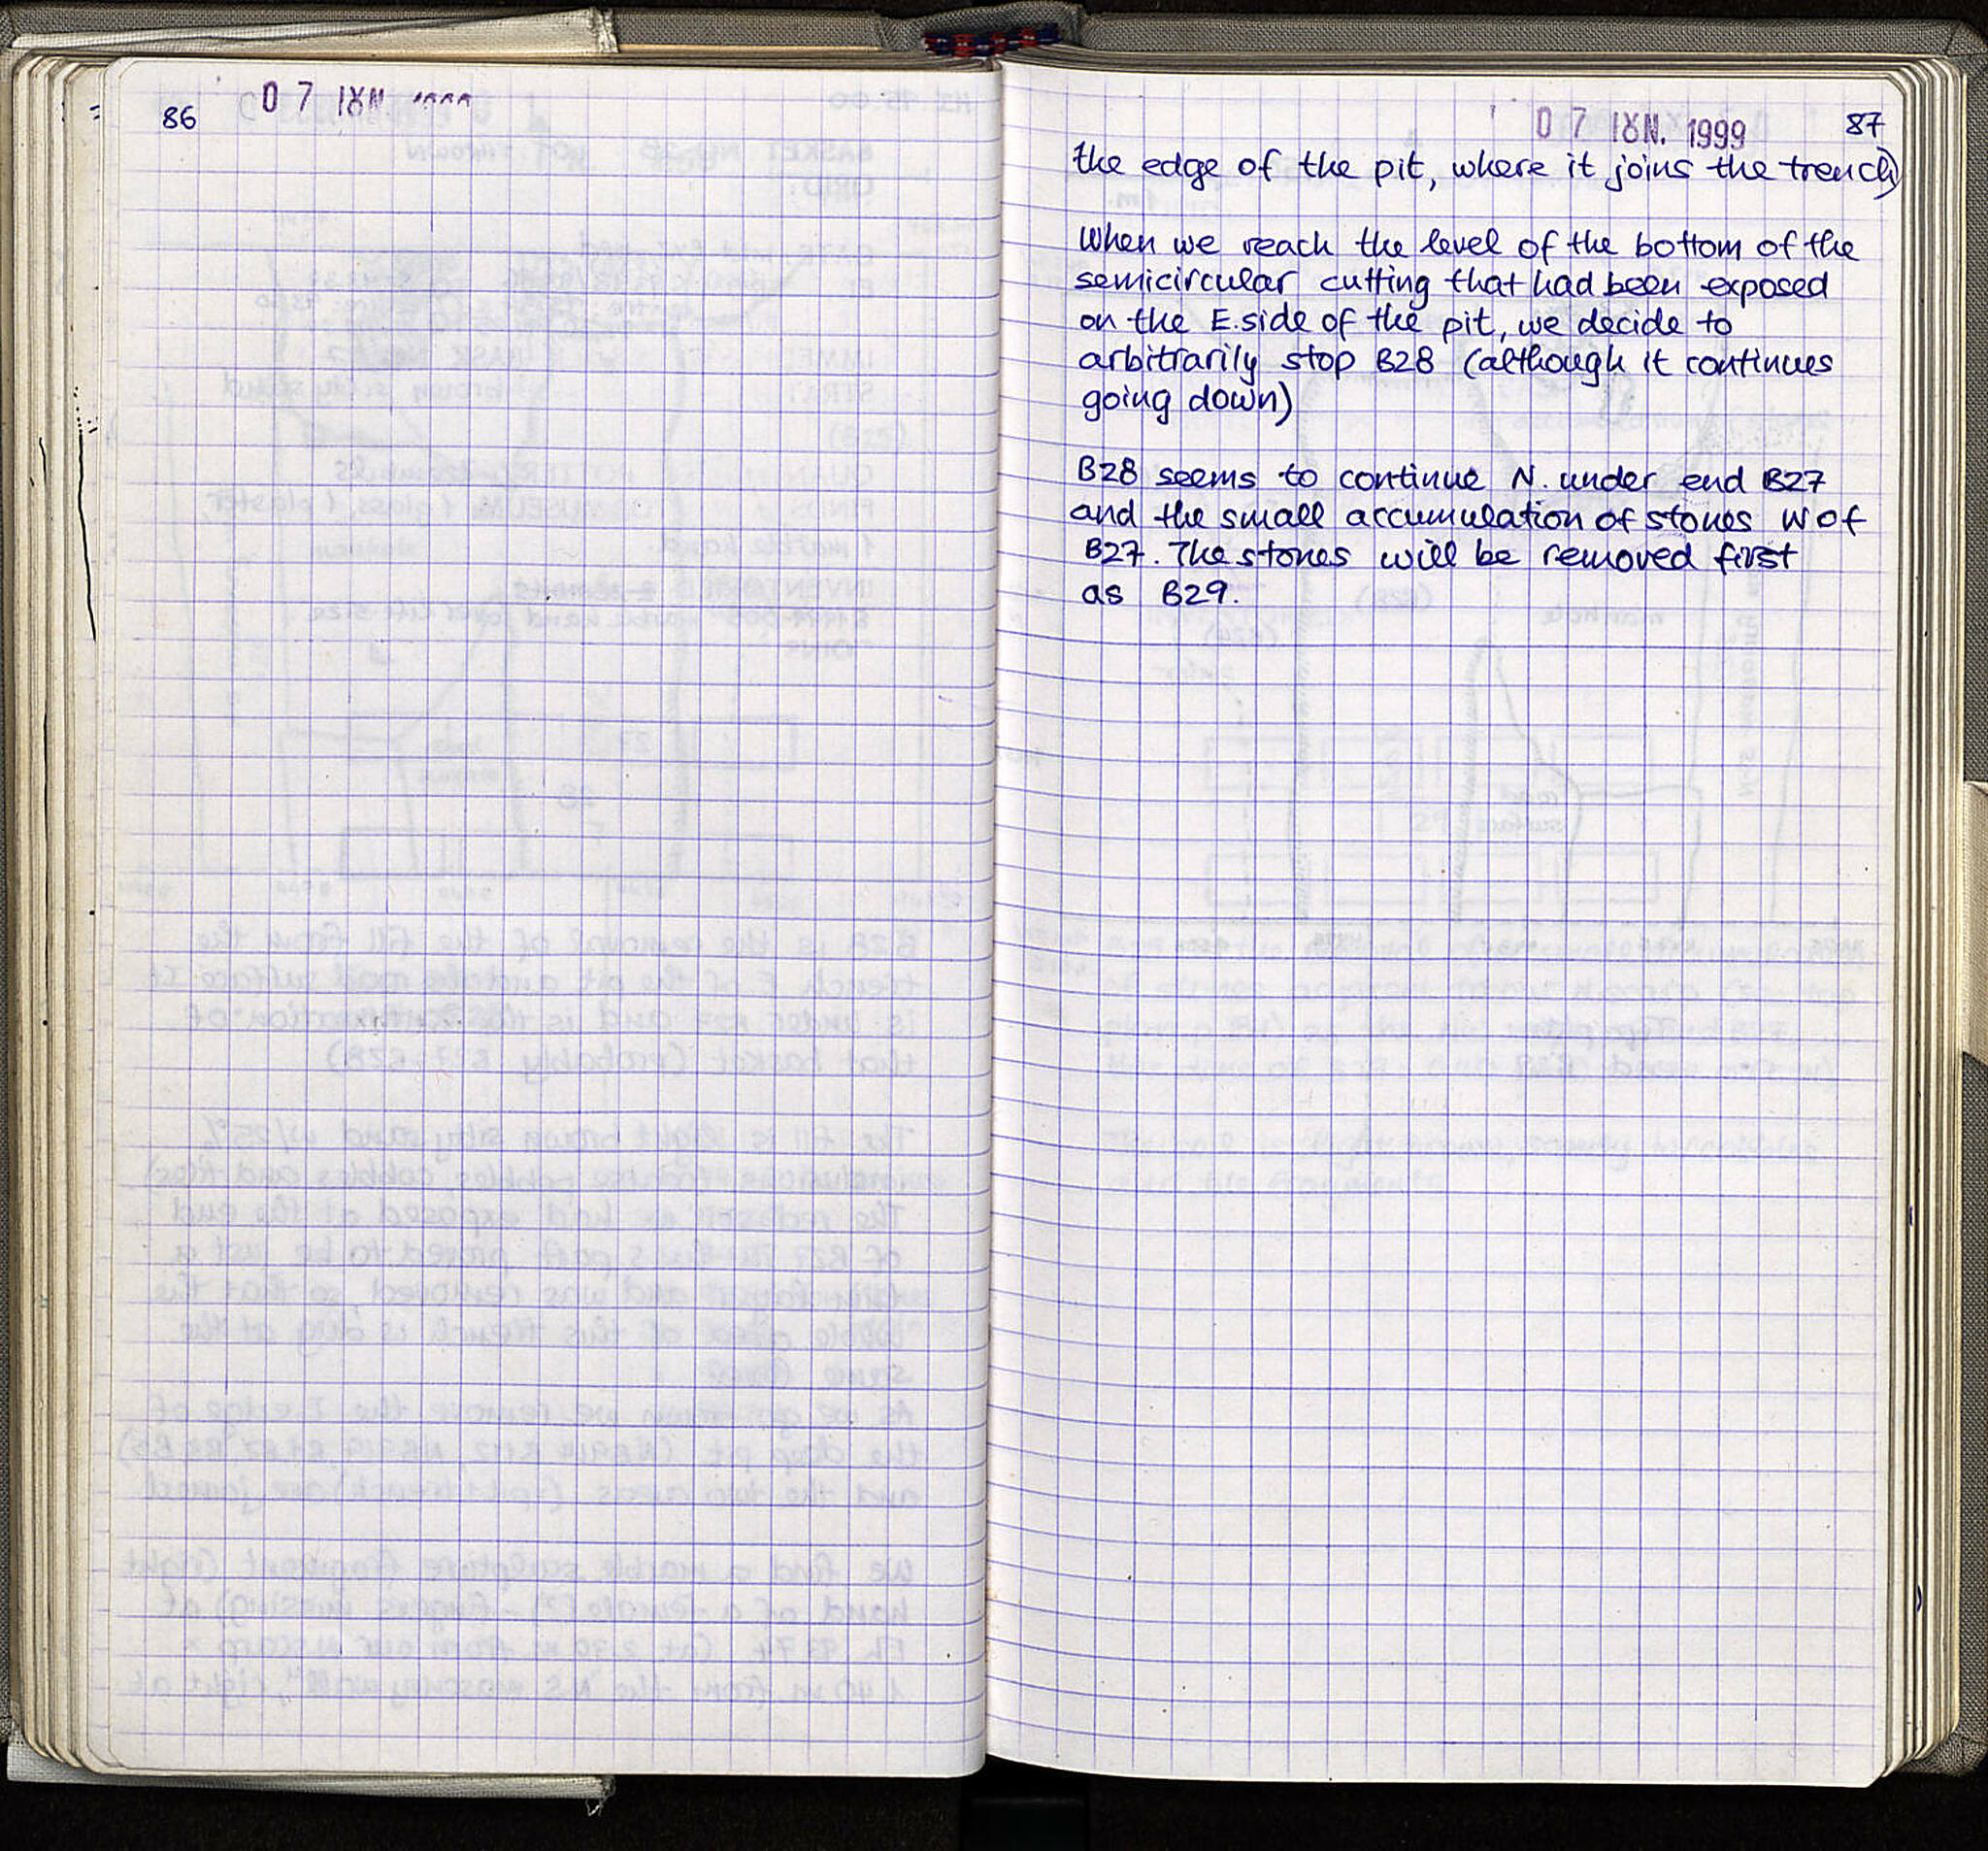 86
0 7 ΙȣΝ.
0 7 ΙȣΝ. 1999
87
the edge of the pit, where it joins the trench)
When we reach the level of the bottom of the
semicircular cutting that had been exposed
on the E.side of the pit, we decide to
arbitrarily stop B28 (although it continues
going down)
B28 seems to continue N. under end B27
and the small accumulation of stones W of
B27. The stones will be removed first
as B29.